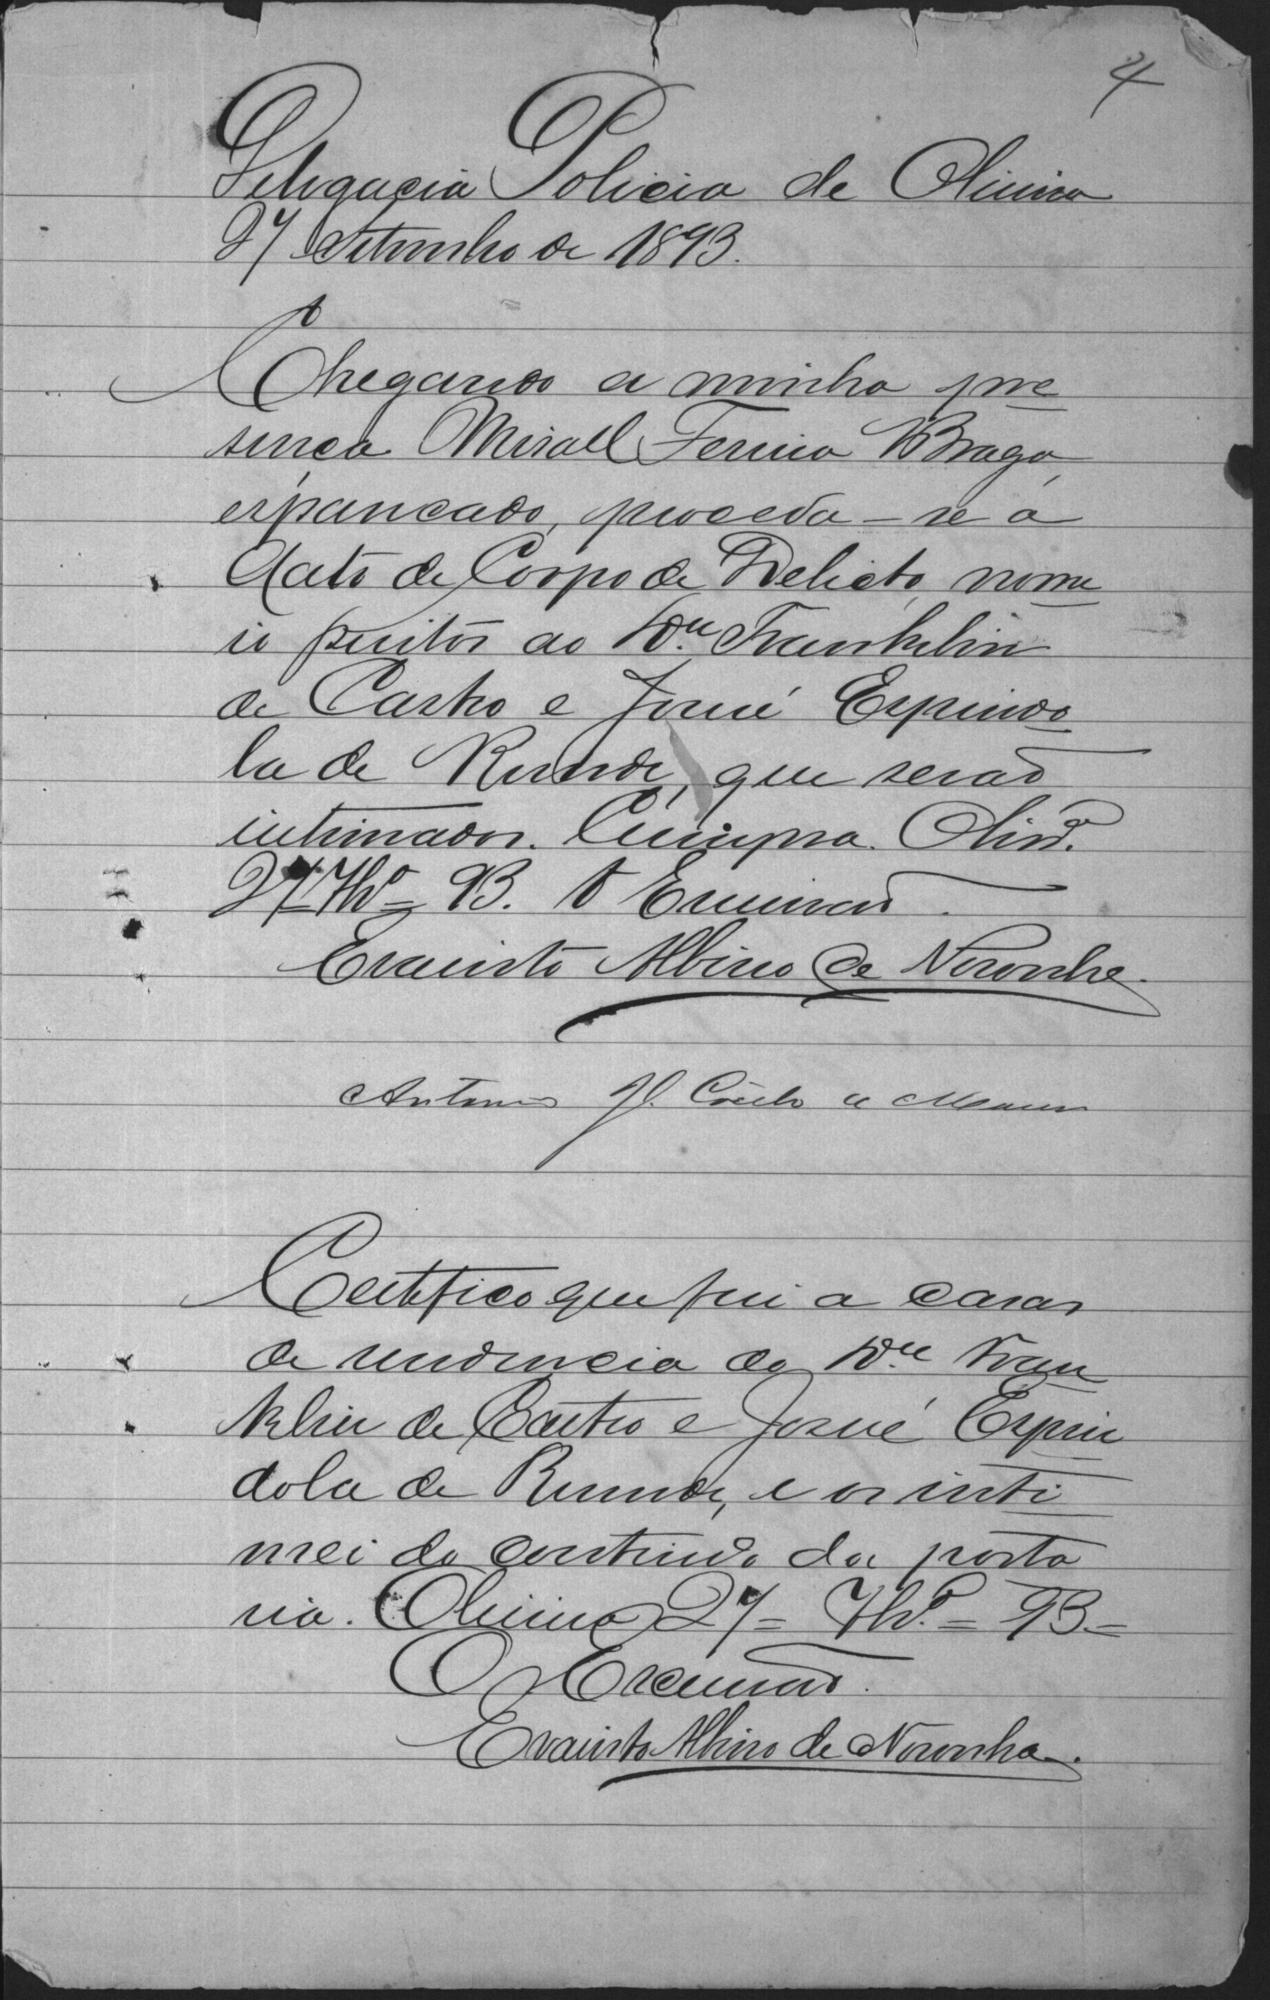 4
Delegacia Policia de Oliveira
27 Setembro de 1893.
Chegando a minha pre
sença Misael Ferreira Braga,
espancado, proceda-se a
Auto de Corpo de Delicto, nome
io peritos ao Dr. Franklin
de Castro e Josué Espindo
la de Resende, que serão
intimados. Cumpra. Olivrª.
27-7bro-93. O Escrivão.
Evaristo Albino de Noronha.
Antonio Coelho de Moura
Certifico que fui a casas
de residencia do Dr. Fran
klin de Castro e Josué Espin
dola de Resende, e os inti
mei do conteúdo da porta
ria. Oliveira 27-7bro-93-
O Escrivão.
Evaristo Albino de Noronha.